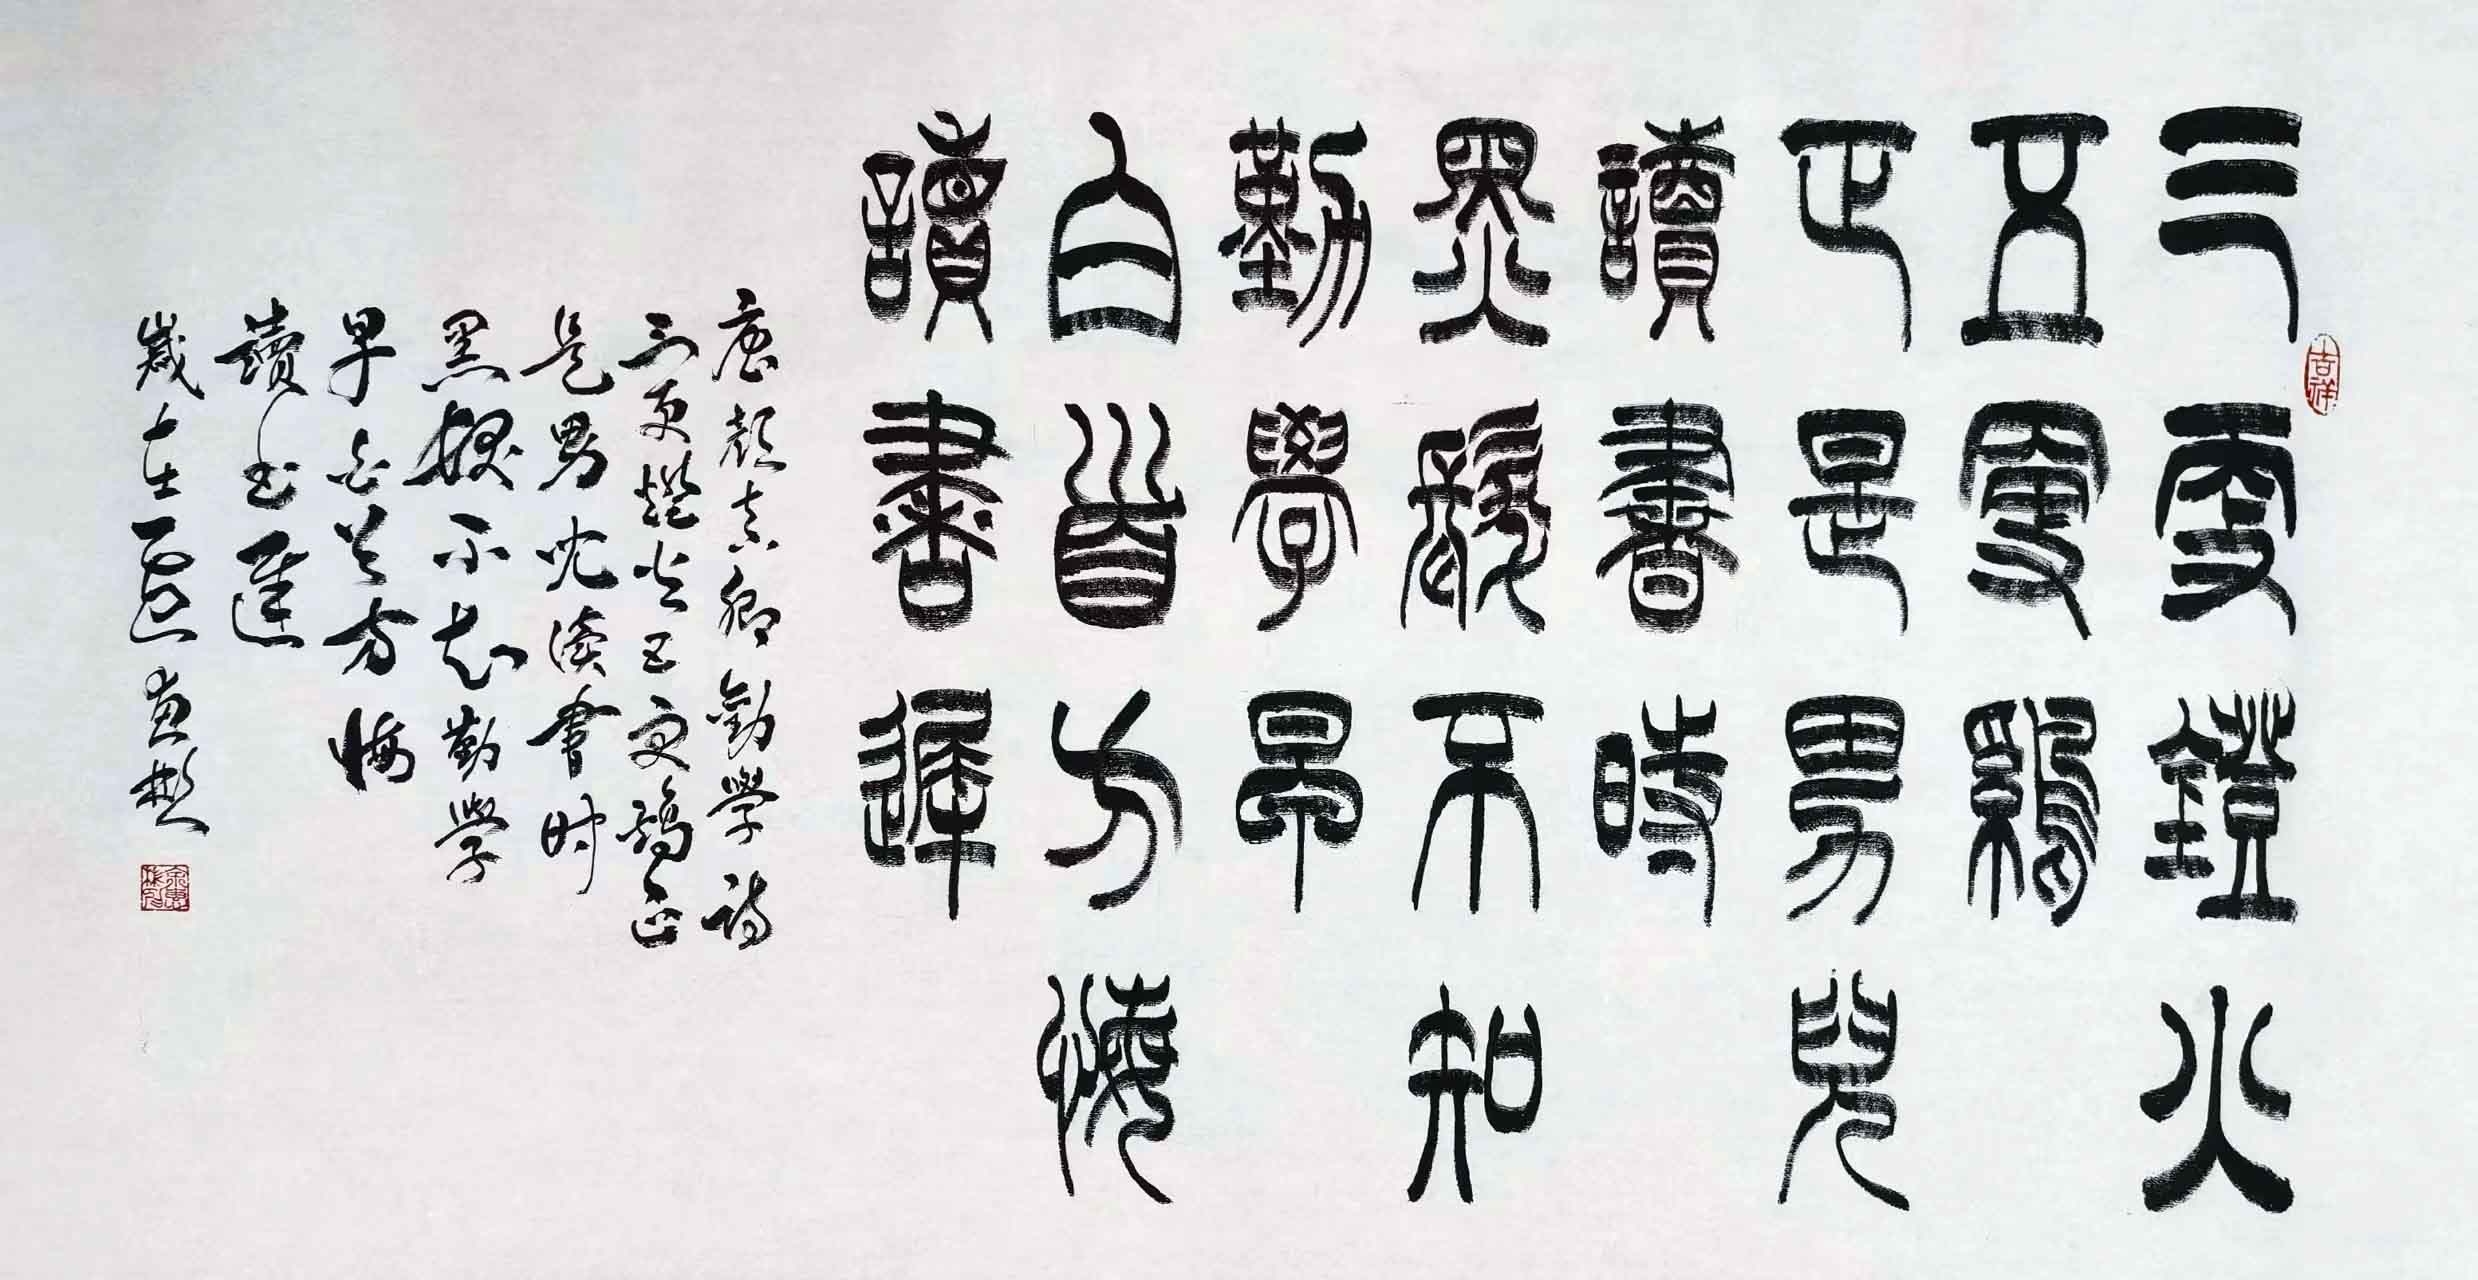 吉祥
三更鐙火
五更鷄
正是男兒
讀書時
黑髮不知
勤學早
白首方悔
讀書遲
唐顏真卿勸學詩
三更燈火五更鷄正
是男兒讀書時
黑髮不知勤學
早白首方悔
讀書遲
歲在 惠彬